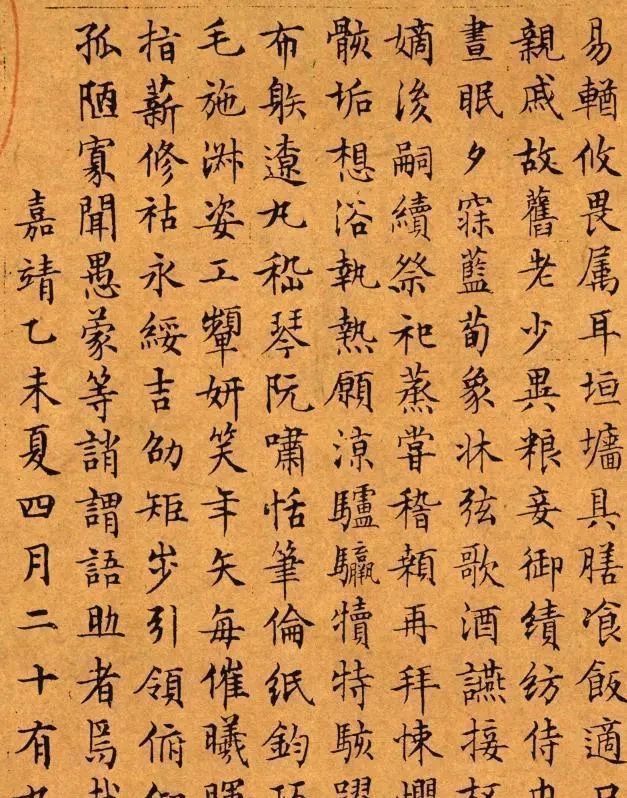 易輶攸畏属耳垣墻具膳飡飯適口
親戚故舊老少異粮妾御績紡侍巾
晝眠夕寐藍荀象牀弦歌酒讌接
嫡後嗣續祭祀蒸甞稽顙再拜悚懼
骸垢想浴執熱願涼驢驘犢特駭躍
布躲遼丸嵇琴阮嘯恬筆倫紙鈞
毛施淋姿工顰妍笑年矢每催曦暉
指薪修祜永綏吉劭矩步引領俯仰
孤陋寡聞愚蒙等誚謂語助者焉哉
嘉靖乙未夏四月二十有九